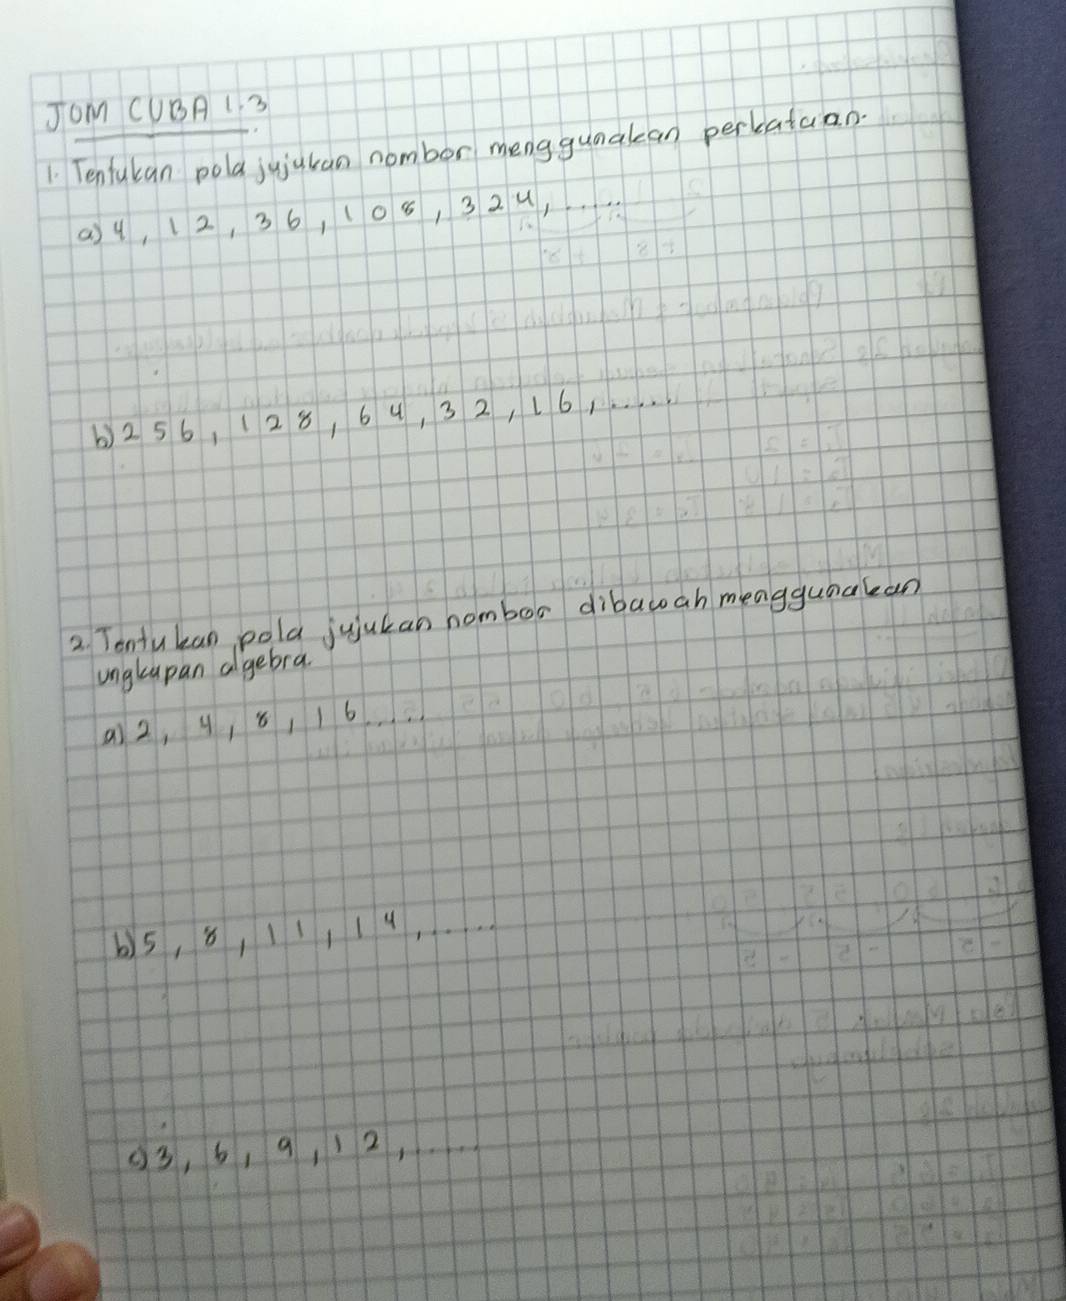 JOM CUBA 1.3
1. Tentukan pola jujukan nombor menggunakan perkataan.
a) 4, 12, 36, 108, 324, .....
b) 256, 128, 64, 32, 16, .....
2. Tentukan pola jujukan nombor dibawah menggunakan
ungkapan algebra.
a) 2, 4, 8, 16.....
b) 5, 8, 11, 14, .....
c) 3, 6, 9, 12, .....